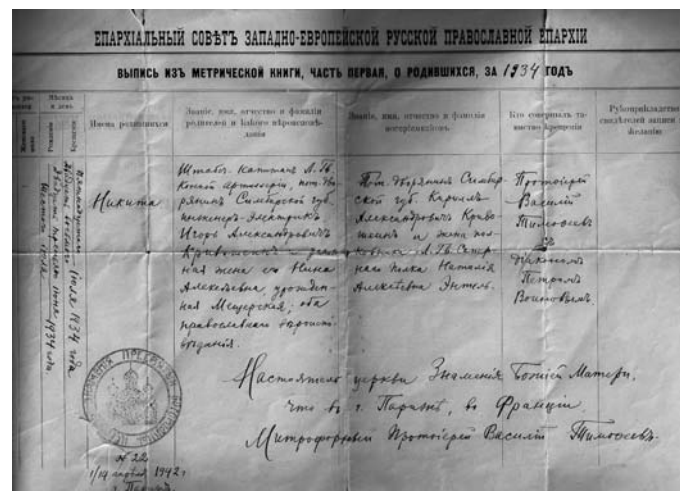 ЕПАРХІАЛЬНЫЙ СОВѢТЪ ЗАПАДНО-ЕВРОПЕЙСКОЙ РУССКОЙ ПРАВОСЛАВНОЙ ЕПАРХІИ
ВЫПИСЬ ИЗЪ МЕТРИЧЕСКОЙ КНИГИ, ЧАСТЬ ПЕРВАЯ, О РОДИВШИХСЯ, ЗА 1934 ГОДЪ
Мѣсяцъ
и день
Рожденія
Крещенія
Имена родившихся
Званіе, имя, отчество и фамилія
родителей и какого вѣроисповѣ-
данія
Званіе, имя, отчество и фамилія
воспріемниковъ
Кто совершалъ та-
инство крещенія
Рукоприкладство
свидѣтелей записи по
желанію
Никита
Штабсъ-Капитанъ Л. Гв.
Конной Артиллеріи, пот. дво-
рянинъ Симбирской губ.
инженеръ-электрикъ
Игорь Александровичъ
Кривошеинъ и закон-
ная жена его Нина
Алексѣевна, урожден-
ная Мещерская; оба
православнаго вѣроиспо-
вѣданія.
Пот. дворянинъ Симбир-
ской губ. Кириллъ
Александровичъ Криво-
шеинъ и жена пол-
ковника Л. Гв.
полка Наталія
Алексѣевна
Протоіерей
Василій
Тимофеевъ
съ
діакономъ
Петромъ
Настоятель церкви Знаменія Божіей Матери,
что въ г. Парижѣ, во Франціи
Митрофорный Протоіерей Василій Тимофеевъ.
№ 22
1/14 апрѣля 1942 г
г. Парижъ.